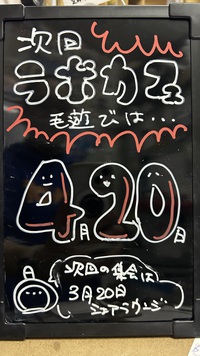 次回
ラボカフェ
毛遊では…
4月20日
次回の集会は
3月20日
シェアラウンジ